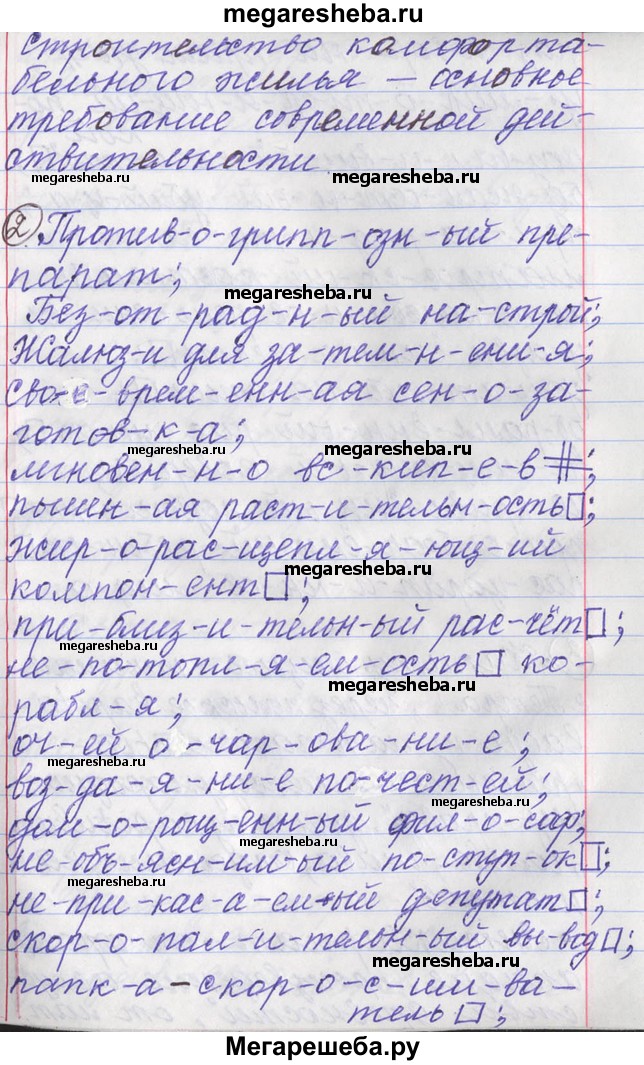 megaresheba.ru
строительство комфорта-
бельного жилья – основное
требование современной дей-
ствительности
megaresheba.ru
megaresheba.ru
2 Против-о-грипп-озн-ый пре-
парат;
megaresheba.ru
Без-от-рад-н-ый на-строй;
megaresheba.ru
Жалюз-и для за-тем-н-ени-я;
сво-е-врем-енн-ая сен-о-за-
готов-к-а;
megaresheba.ru
мгновен-н-о вс-кип-е-в#;
пышн-ая раст-и-тельн-ость□;
жир-о-рас-щепл-я-ющ-ий
megaresheba.ru
компон-ент□;
при-близ-и-тельн-ый рас-чёт□;
megaresheba.ru
не-по-топл-я-ем-ость□ ко-
megaresheba.ru
рабл-я;
оч-ей о-чар-ова-ни-е;
megaresheba.ru
воз-да-я-ни-е по-чест-ей;
megaresheba.ru
дом-о-рощ-енн-ый фил-о-соф;
не-объ-ясн-им-ый по-ступ-ок□;
megaresheba.ru
не-при-кас-а-ем-ый депутат□;
megaresheba.ru
скор-о-пал-и-тельн-ый вы-вод□;
megaresheba.ru
папк-а-скор-о-с-ши-ва-
тель□;
Мегарешеба.ру